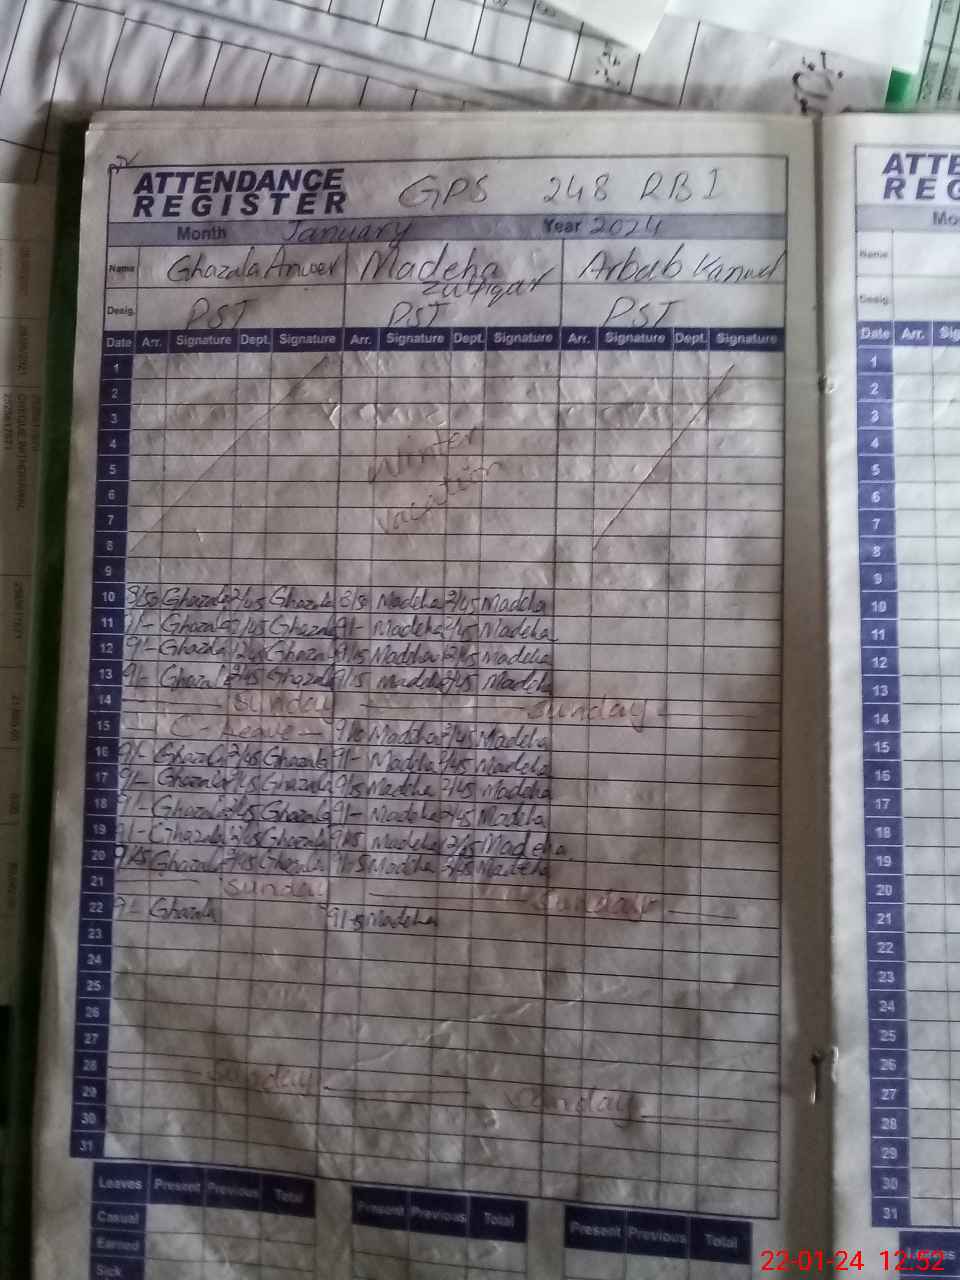 ATTENDANCE REGISTER GPS 248 RBI
Month January Year 2024
Name Ghazala Anwer Madeha Zulfiqar Arbab Kanwal
Desig. PST PST PST
Date Arr. Signature Dept. Signature Arr. Signature Dept. Signature Arr. Signature Dept. Signature
1
2
3
4 winter
5
6 vacation
7
8
9
10 8/50 Ghazala 2/45 Ghazala 8/50 Madeha 2/45 Madeha
11 9/- Ghazala 2/45 Ghazala 9/- Madeha 2/45 Madeha
12 9/- Ghazala 12/45 Ghazala 9/15 Madeha 12/45 Madeha
13 9/- Ghazala 2/45 Ghazala 9/15 Madeha 2/45 Madeha
14 Sunday Sunday
15 Leave 9/10 Madeha 2/45 Madeha
16 9/- Ghazala 2/45 Ghazala 9/- Madeha 2/45 Madeha
17 9/- Ghazala 2/45 Ghazala 9/15 Madeha 2/45 Madeha
18 9/- Ghazala 2/45 Ghazala 9/- Madeha 2/45 Madeha
19 9/- Ghazala 12/45 Ghazala 9/15 Madeha 12/45 Madeha
20 9/15 Ghazala 2/45 Ghazala 9/15 Madeha 2/45 Madeha
21 Sunday Sunday
22 9/- Ghazala 9/-5 Madeha
23
24
25
26
27
28 Sunday Sunday
29
30
31
Leaves Present Previous Total Present Previous Total Present Previous Total
Casual
Earned
Sick
ATTE
REG
Mo
Name
Desig.
Date Arr. Sig
1
2
3
4
5
6
7
8
9
10
11
12
13
14
15
16
17
18
19
20
21
22
23
24
25
26
27
28
29
30
31
Leaves
22-01-24 12:52